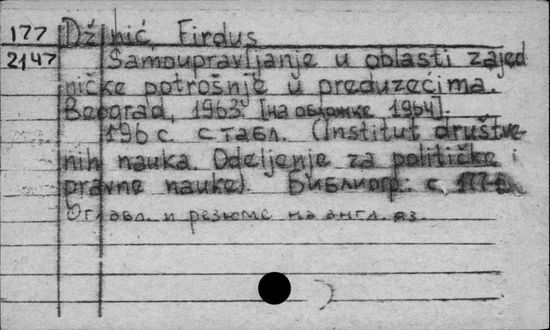 177 Džinić, Firdus
2147 Samoupravljanje u oblasti zajed
ničke potrošnje u preduzećima.
Beograd, 1963. [на обложке 1964].
196 с. с табл. (Institut društve-
nih nauka. Odeljenje za političke i
pravne nauke). Библиогр.: с.
Оглавл. и резюме на англ. яз.